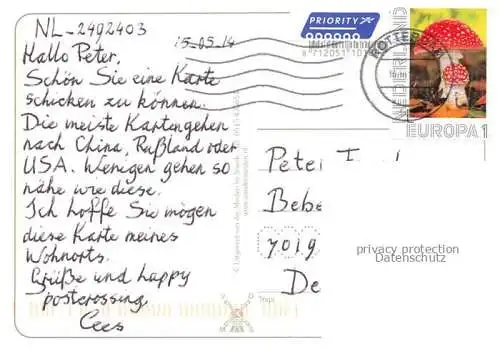 NL-2492403
15-05-14
Hallo Peter,
Schön Sie eine Karte
schicken zu können.
Die meiste Kartengehen
nach China, Rußland oder
USA. Wenigen gehen so
nähe wie diese.
Ich hoffe Sie mögen
diese Karte meines
Wohnorts.
Grüße und happy
postcrossing.
Cees
PRIORITY
ROTTER
EUROPA 1
Peter
Bebe
7019
De
privacy protection
Datenschutz